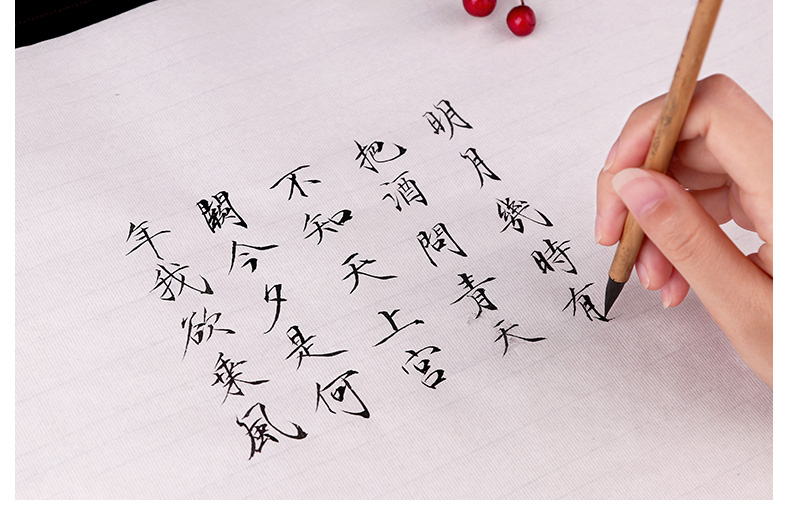 明月幾時有
把酒問青天
不知天上宮
闕今夕是何
年我欲乘風